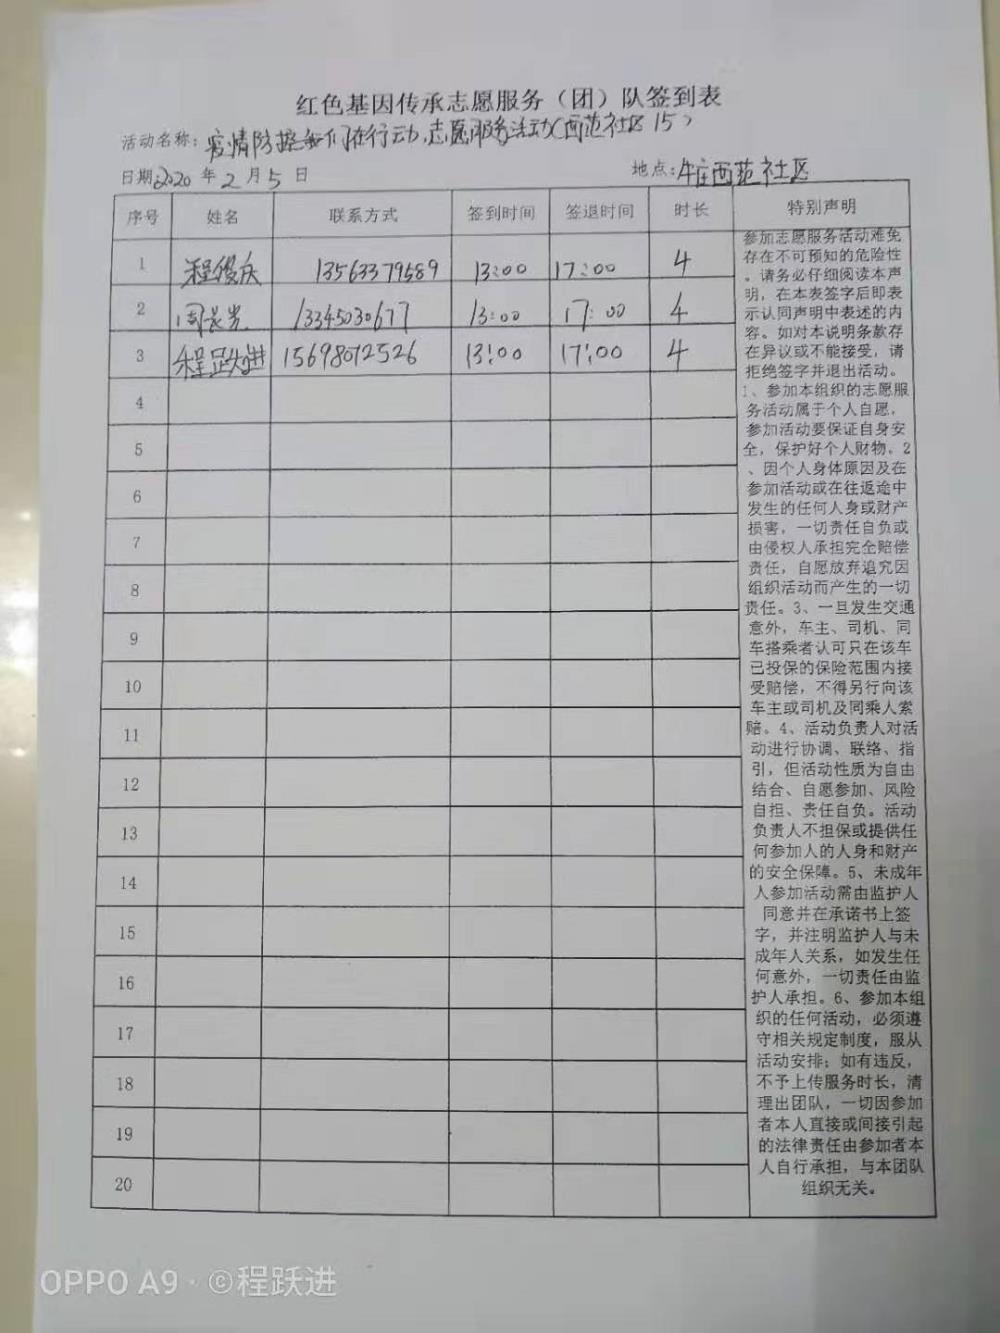 红色基因传承志愿服务（团）队签到表
活动名称：疫情防控我们在行动，志愿服务活动（西范社区15）
日期2020年2月5日 地点：牛庄西范社区
序号 姓名 联系方式 签到时间 签退时间 时长 特别声明
1 程俊庆 13563379589 13:00 17:00 4
2 周长岩 13345030677 13:00 17:00 4
3 程跃进 15698072526 13:00 17:00 4
4
5
6
7
8
9
10
11
12
13
14
15
16
17
18
19
20
参加志愿服务活动难免
存在不可预知的危险性
。请务必仔细阅读本声
明，在本表签字后即表
示认同声明中表述的内
容。如对本说明条款存
在异议或不能接受，请
拒绝签字并退出活动。
1、参加本组织的志愿服
务活动属于个人自愿，
参加活动要保证自身安
全，保护好个人财物。2
、因个人身体原因及在
参加活动或在往返途中
发生的任何人身或财产
损害，一切责任自负或
由侵权人承担完全赔偿
责任，自愿放弃追究因
组织活动而产生的一切
责任。3、一旦发生交通
意外，车主、司机、同
车搭乘者认可只在该车
已投保的保险范围内接
受赔偿，不得另行向该
车主或司机及同乘人索
赔。4、活动负责人对活
动进行协调、联络、指
引，但活动性质为自由
结合、自愿参加、风险
自担、责任自负。活动
负责人不担保或提供任
何参加人的人身和财产
的安全保障。5、未成年
人参加活动需由监护人
同意并在承诺书上签
字，并注明监护人与未
成年人关系，如发生任
何意外，一切责任由监
护人承担。6、参加本组
织的任何活动，必须遵
守相关规定制度，服从
活动安排；如有违反，
不予上传服务时长，清
理出团队，一切因参加
者本人直接或间接引起
的法律责任由参加者本
人自行承担，与本团队
组织无关。
OPPO A9 · ©程跃进